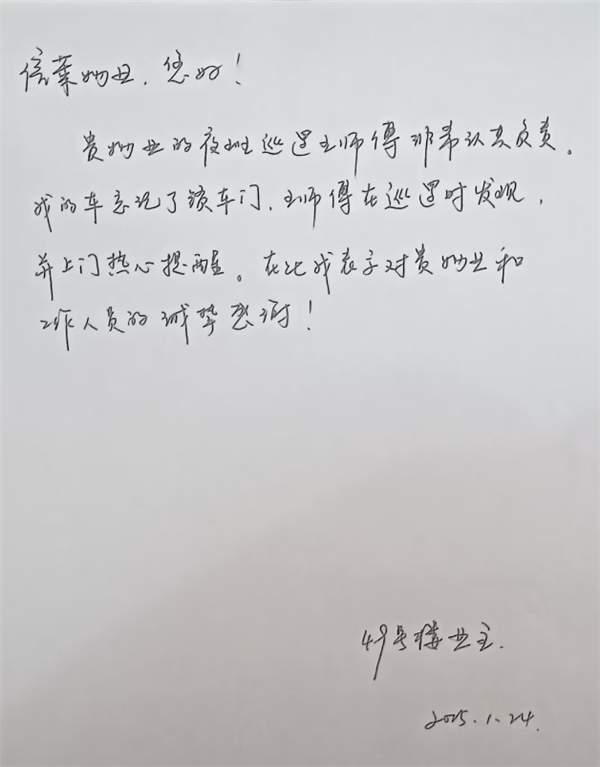 信莱物业，您好！
贵物业的夜班巡逻王师傅非常认真负责。
我的车忘记了锁车门，王师傅在巡逻时发现，
并上门热心提醒。在此我表示对贵物业和
工作人员的诚挚感谢！
49号楼业主.
2025.1.24.